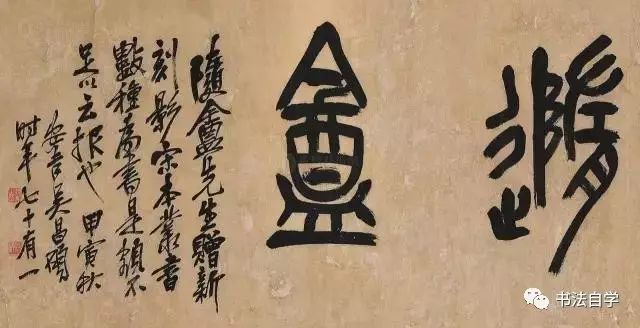 隨盦
隨盦先生贈新
刻影宋本叢書
數種為書是額不
足以云報也 甲寅秋
安吉吳昌碩
時年七十有一
书法自学